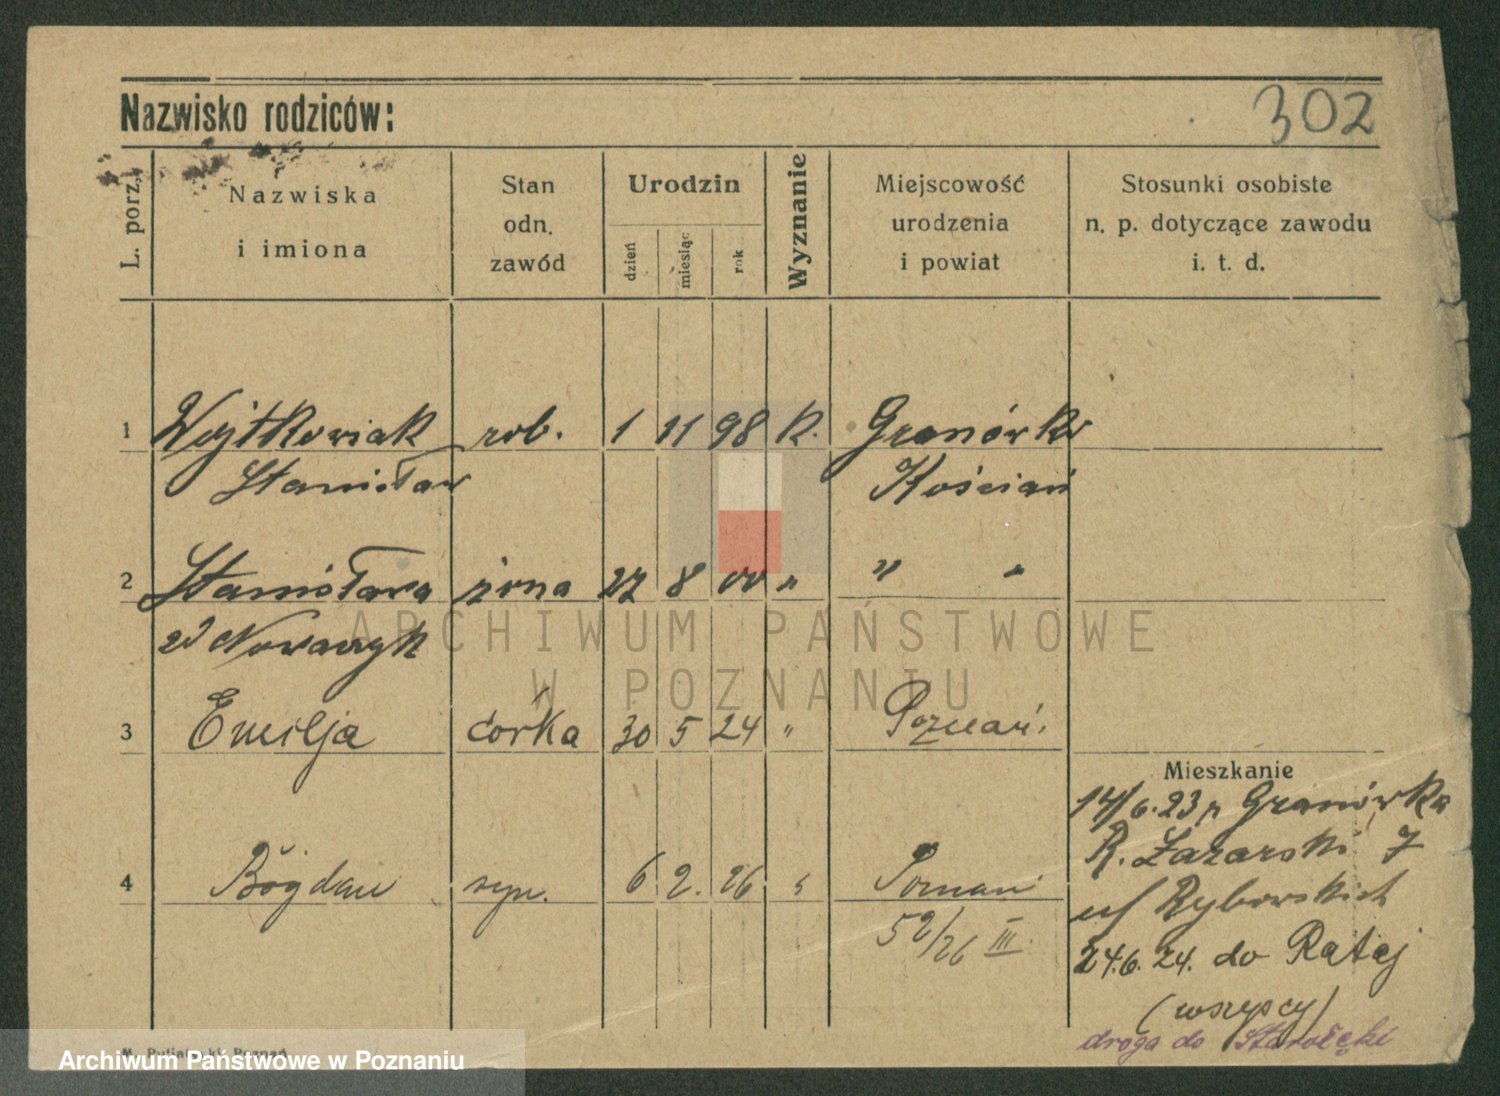 302
Nazwisko rodziców:
L. porz. Nazwiska i imiona Stan odn. zawód Urodzin dzień miesiąc rok Wyznanie Miejscowość urodzenia i powiat Stosunki osobiste n. p. dotyczące zawodu i. t. d.
1 Wojtkowiak rob. 1 11 98 K. Granówko
Stanisław Kościan
2 Stanisława żona 27 8 00 " " "
zd Nowaczyk
3 Emilja córka 30 5 24 " Poznań.
Mieszkanie
14/6.23 p Granówko
R. Łazarski 7
u/ Rybowskich
4 Bogdan syn. 6 2. 26 " Poznań
52/26 III.
24.6.24. do Rataj
(wszyscy)
droga do Starołęki
ARCHIWUM PAŃSTWOWE
W POZNANIU
Archiwum Państwowe w Poznaniu